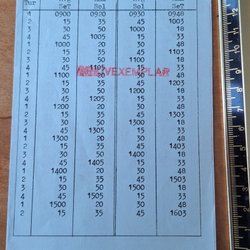 Tur SeT Sol Sol SeT
4 0900 0920 0930 0948
2 15 35 45 1003
3 30 50 1000 18
4 45 1005 15 33
1 1000 20 30 48
2 15 35 45 1103
3 30 50 1100 18
4 45 1105 15 33
1 1100 30 48
VEXEMPLAR
2 15 35 45 1203
3 30 50 1200 18
4 45 1205 15 33
1 1200 20 30 48
2 15 35 45 1303
3 30 50 1300 18
4 45 1305 15 33
1 1300 20 30 48
2 15 35 45 1403
3 30 50 1400 18
4 45 1405 15 33
1 1400 20 30 48
2 15 35 45 1503
3 30 50 1500 18
4 45 1505 15 33
1 1500 20 30 48
2 15 35 45 1603